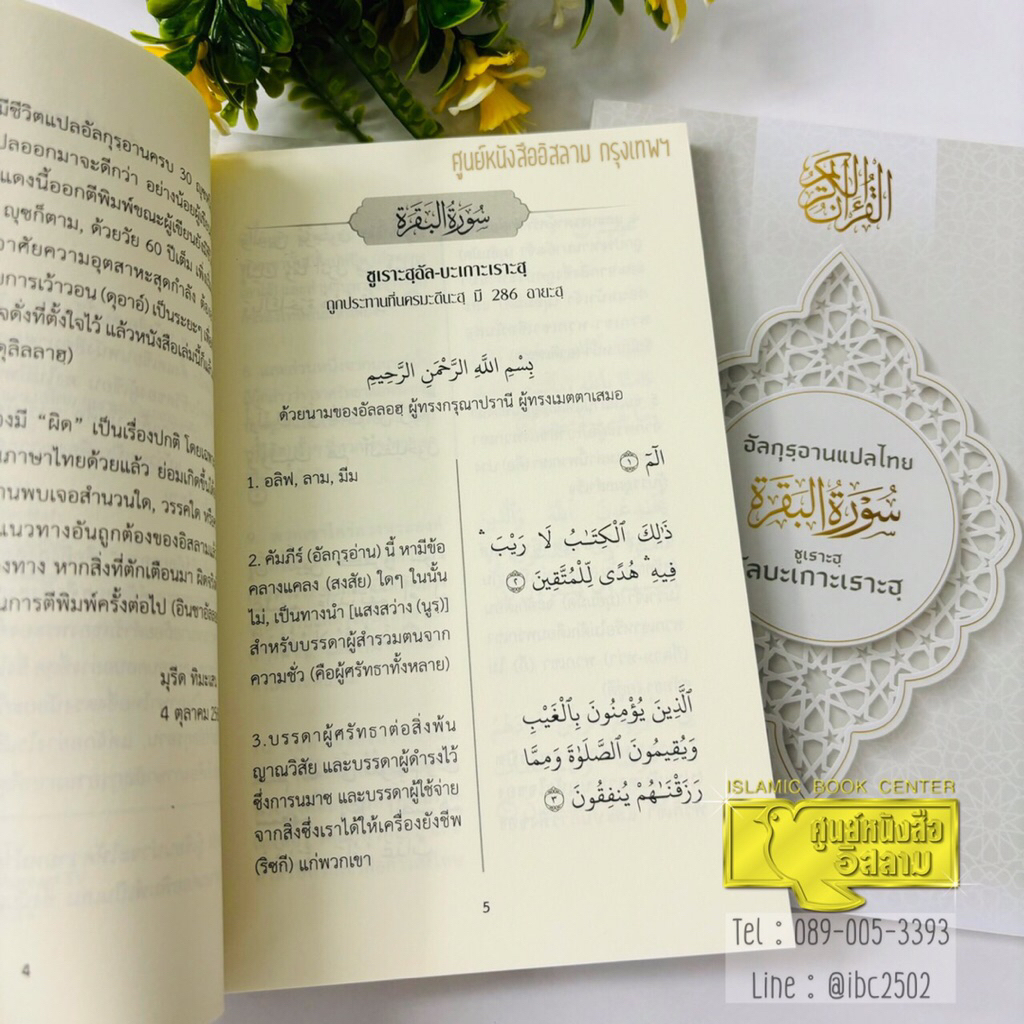 มีชีวิตแปลอัลกุรฺอานครบ 30
ปลออกมาจะดีกว่า อย่างน้อยผู้เขียน
แดงนี้ออกตีพิมพ์ขณะผู้เขียนยัง
ญุซก็ตาม, ด้วยวัย 60 ปีเต็ม
าศัยความอุตสาหะสุดกำลัง
ยการเว้าวอน (ดุอาอ์) เป็นระยะๆ
จดั่งที่ตั้งใจไว้ แล้วหนังสือเล่มนี้ก็
ดุลิลลาฮฺ)
องมี “ผิด” เป็นเรื่องปกติ
นภาษาไทยด้วยแล้ว ย่อมเกิดขึ้นได้
านพบเจอสำนวนใด, วรรคใด
แนวทางอันถูกต้องของอิสลาม
องทาง หากสิ่งที่ตักเตือนมา
นการตีพิมพ์ครั้งต่อไป
มุรีด
4 ตุลาคม
4
ศูนย์หนังสืออิสลาม กรุงเทพฯ
سُورَةُ البَقَرَةِ
ซูเราะฮฺอัล-บะเกาะเราะฮฺ
ถูกประทานที่นครมะดีนะฮฺ มี 286 อายะฮฺ
بِسْمِ اللَّهِ الرَّحْمَنِ الرَّحِيمِ
ด้วยนามของอัลลอฮฺ ผู้ทรงกรุณาปรานี ผู้ทรงเมตตาเสมอ
1. อลิฟ, ลาม, มีม
الٓمٓ ۝١
2. คัมภีร์ (อัลกุรฺอ่าน) นี้ หามีข้อ
คลางแคลง (สงสัย) ใดๆ ในนั้น
ไม่, เป็นทางนำ [แสงสว่าง (นูร)]
สำหรับบรรดาผู้สำรวมตนจาก
ความชั่ว (คือผู้ศรัทธาทั้งหลาย)
ذَٰلِكَ ٱلْكِتَـٰبُ لَا رَيْبَ ۛ
فِيهِ ۛ هُدًى لِّلْمُتَّقِينَ ۝٢
3.บรรดาผู้ศรัทธาต่อสิ่งพ้น
ญาณวิสัย และบรรดาผู้ดำรงไว้
ซึ่งการนมาซ และบรรดาผู้ใช้จ่าย
จากสิ่งซึ่งเราได้ให้เครื่องยังชีพ
(ริซกี) แก่พวกเขา
ٱلَّذِينَ يُؤْمِنُونَ بِٱلْغَيْبِ
وَيُقِيمُونَ ٱلصَّلَوٰةَ وَمِمَّا
رَزَقْنَـٰهُمْ يُنفِقُونَ ۝٣
5
القرآن الكريم
อัลกุรฺอานแปลไทย
سُورَةُ البَقَرَةِ
ซูเราะฮฺ
ัลบะเกาะเราะฮฺ
ISLAMIC BOOK CENTER
ศูนย์หนังสือ
อิสลาม
Tel : 089-005-3393
Line : @ibc2502